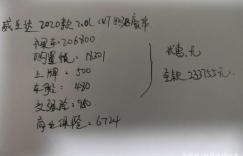 威兰达 2020款 2.0L CVT 四驱豪华
206800
购置税:18301
上牌:500
车船:480
交强险:950
商业保险:6724
优惠:无
全款 233755元